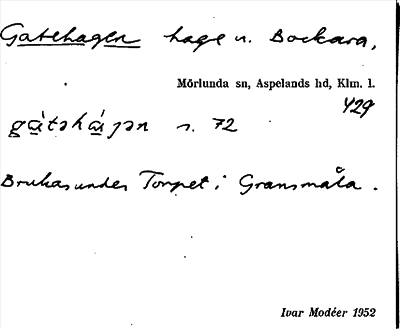 Gatehagen hage n. Bockara,
Mörlunda sn, Aspelands hd, Klm. l.
429
gàtəhàɟən s. 72
Brukas under Torpet i Gransmåla.
Ivar Modéer 1952